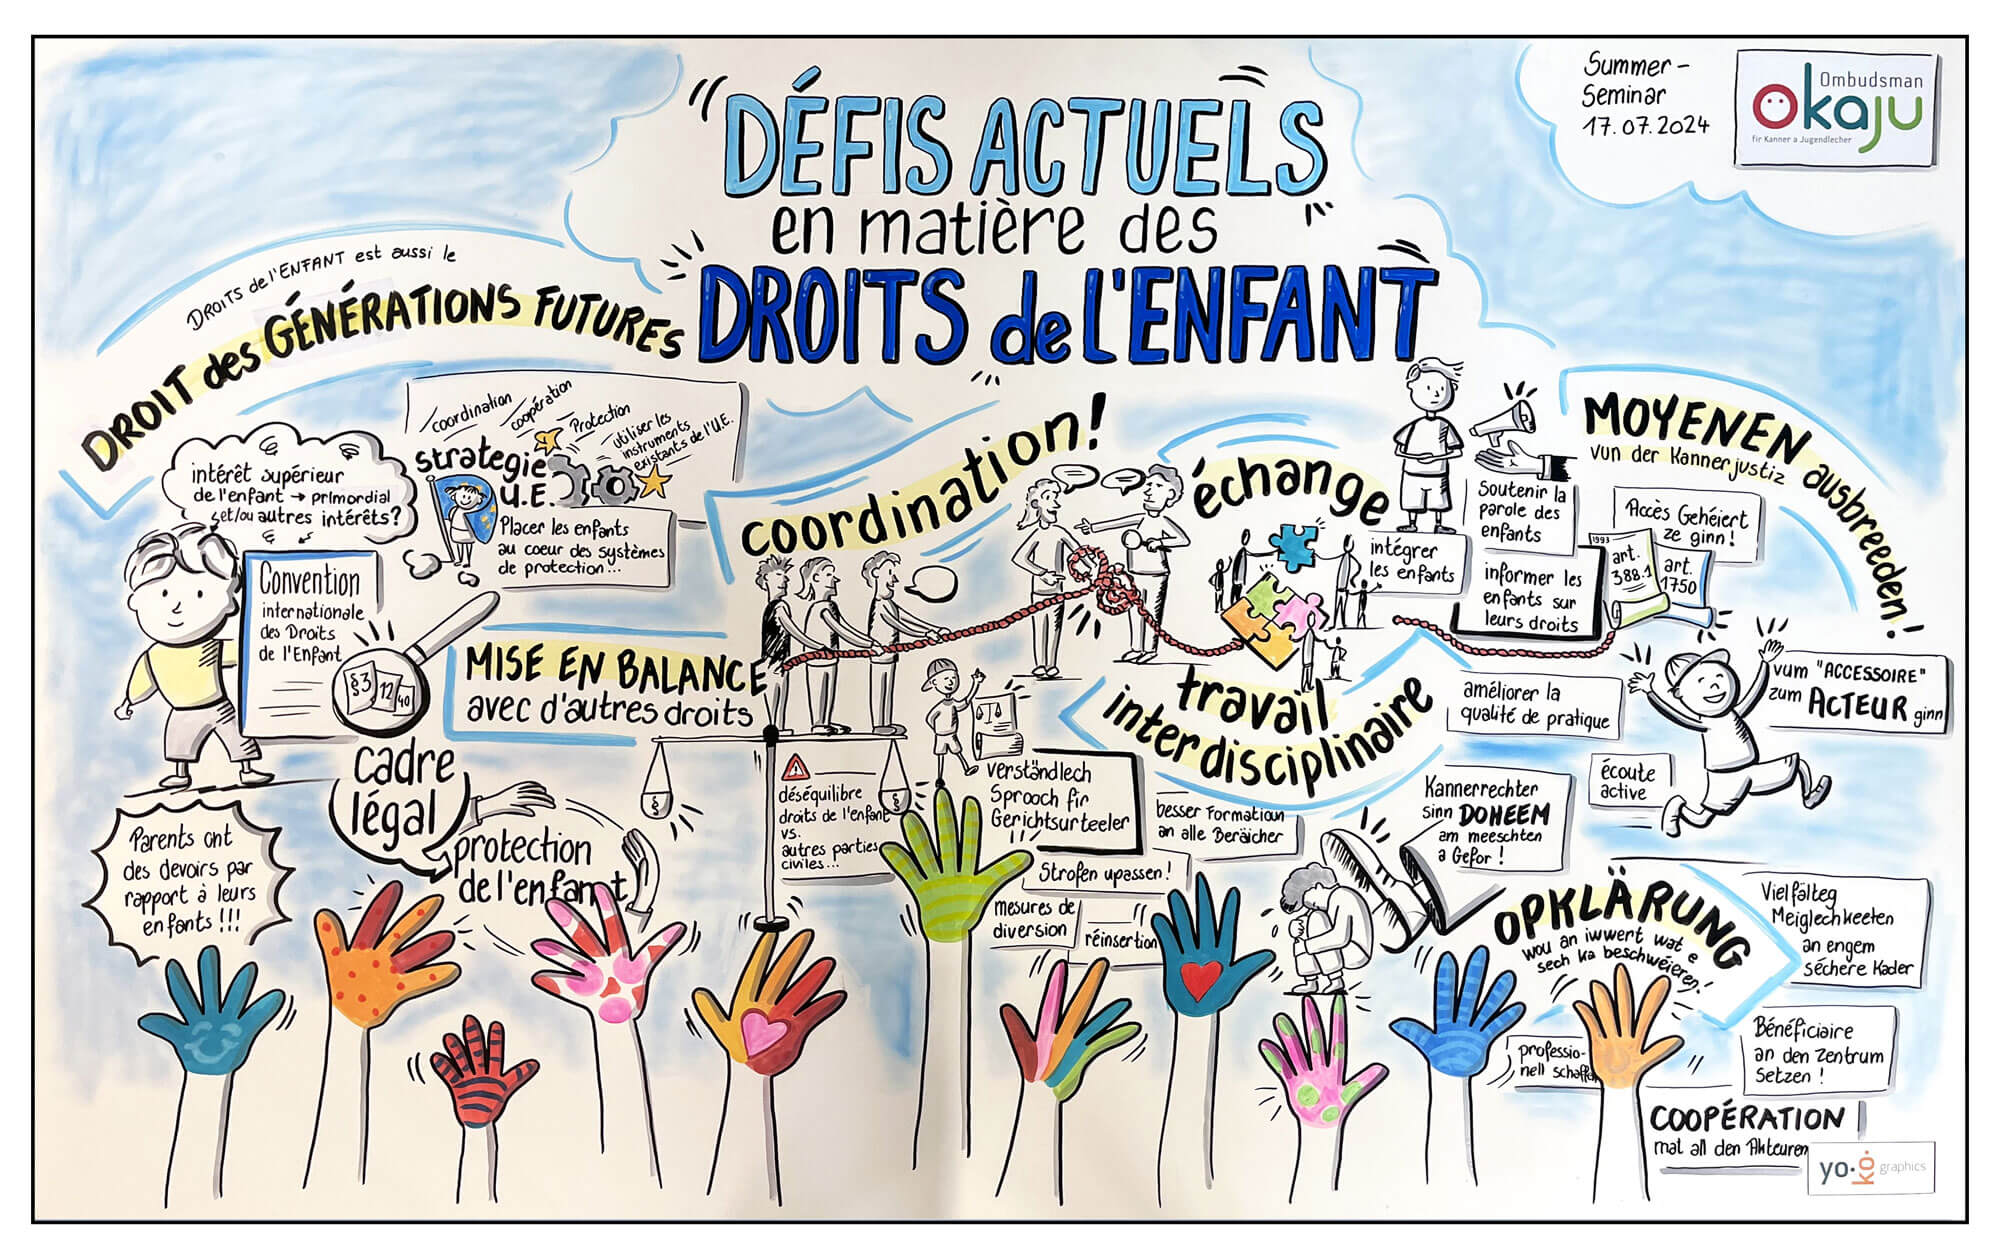 "DÉFIS ACTUELS
en matière des"
DROITS de L'ENFANT
Summer-
Seminar
17.07.2024
Ombudsman
Okaju
fir Kanner a Jugendlecher
DROITS de l'ENFANT est aussi le
DROIT des GÉNÉRATIONS FUTURES
intérêt supérieur
de l'enfant → primordial
et/ou autres intérêts?
coordination
coopération
Protection
utiliser les
instruments
existants de l'U.E.
stratégie
U.E.
Placer les enfants
au coeur des systèmes
de protection...
Convention
internationale
des Droits
de l'Enfant
§3
12
40
cadre
légal
protection
de l'enfant
Parents ont
des devoirs par
rapport à leurs
enfants !!!
MISE EN BALANCE
avec d'autres droits
§
§
déséquilibre
droits de l'enfant
vs.
autres parties
civiles...
coordination!
échange
travail
interdisciplinaire
intégrer
les enfants
Soutenir la
parole des
enfants
informer les
enfants sur
leurs droits
1993
art.
388.1
art.
1750
Accès Gehéiert
ze ginn!
MOYENEN ausbreeden!
vun der Kannerjustiz
vum "ACCESSOIRE"
zum ACTEUR ginn
améliorer la
qualité de pratique
écoute
active
verständlech
Sprooch fir
Gerichtsurteeler
besser Formatioun
an alle Beräicher
Strofen upassen!
mesures de
diversion
réinsertion
Kannerrechter
sinn DOHEEM
am meeschten
a Gefor!
OPKLÄRUNG
wou an iwwert wat e
sech ka beschwéieren!
Vielfälteg
Meiglechkeeten
an engem
séchere Kader
Bénéficiaire
an den Zentrum
setzen!
professio-
nell schaffen
COOPÉRATION
mat all den Akteuren
yo.ko. graphics